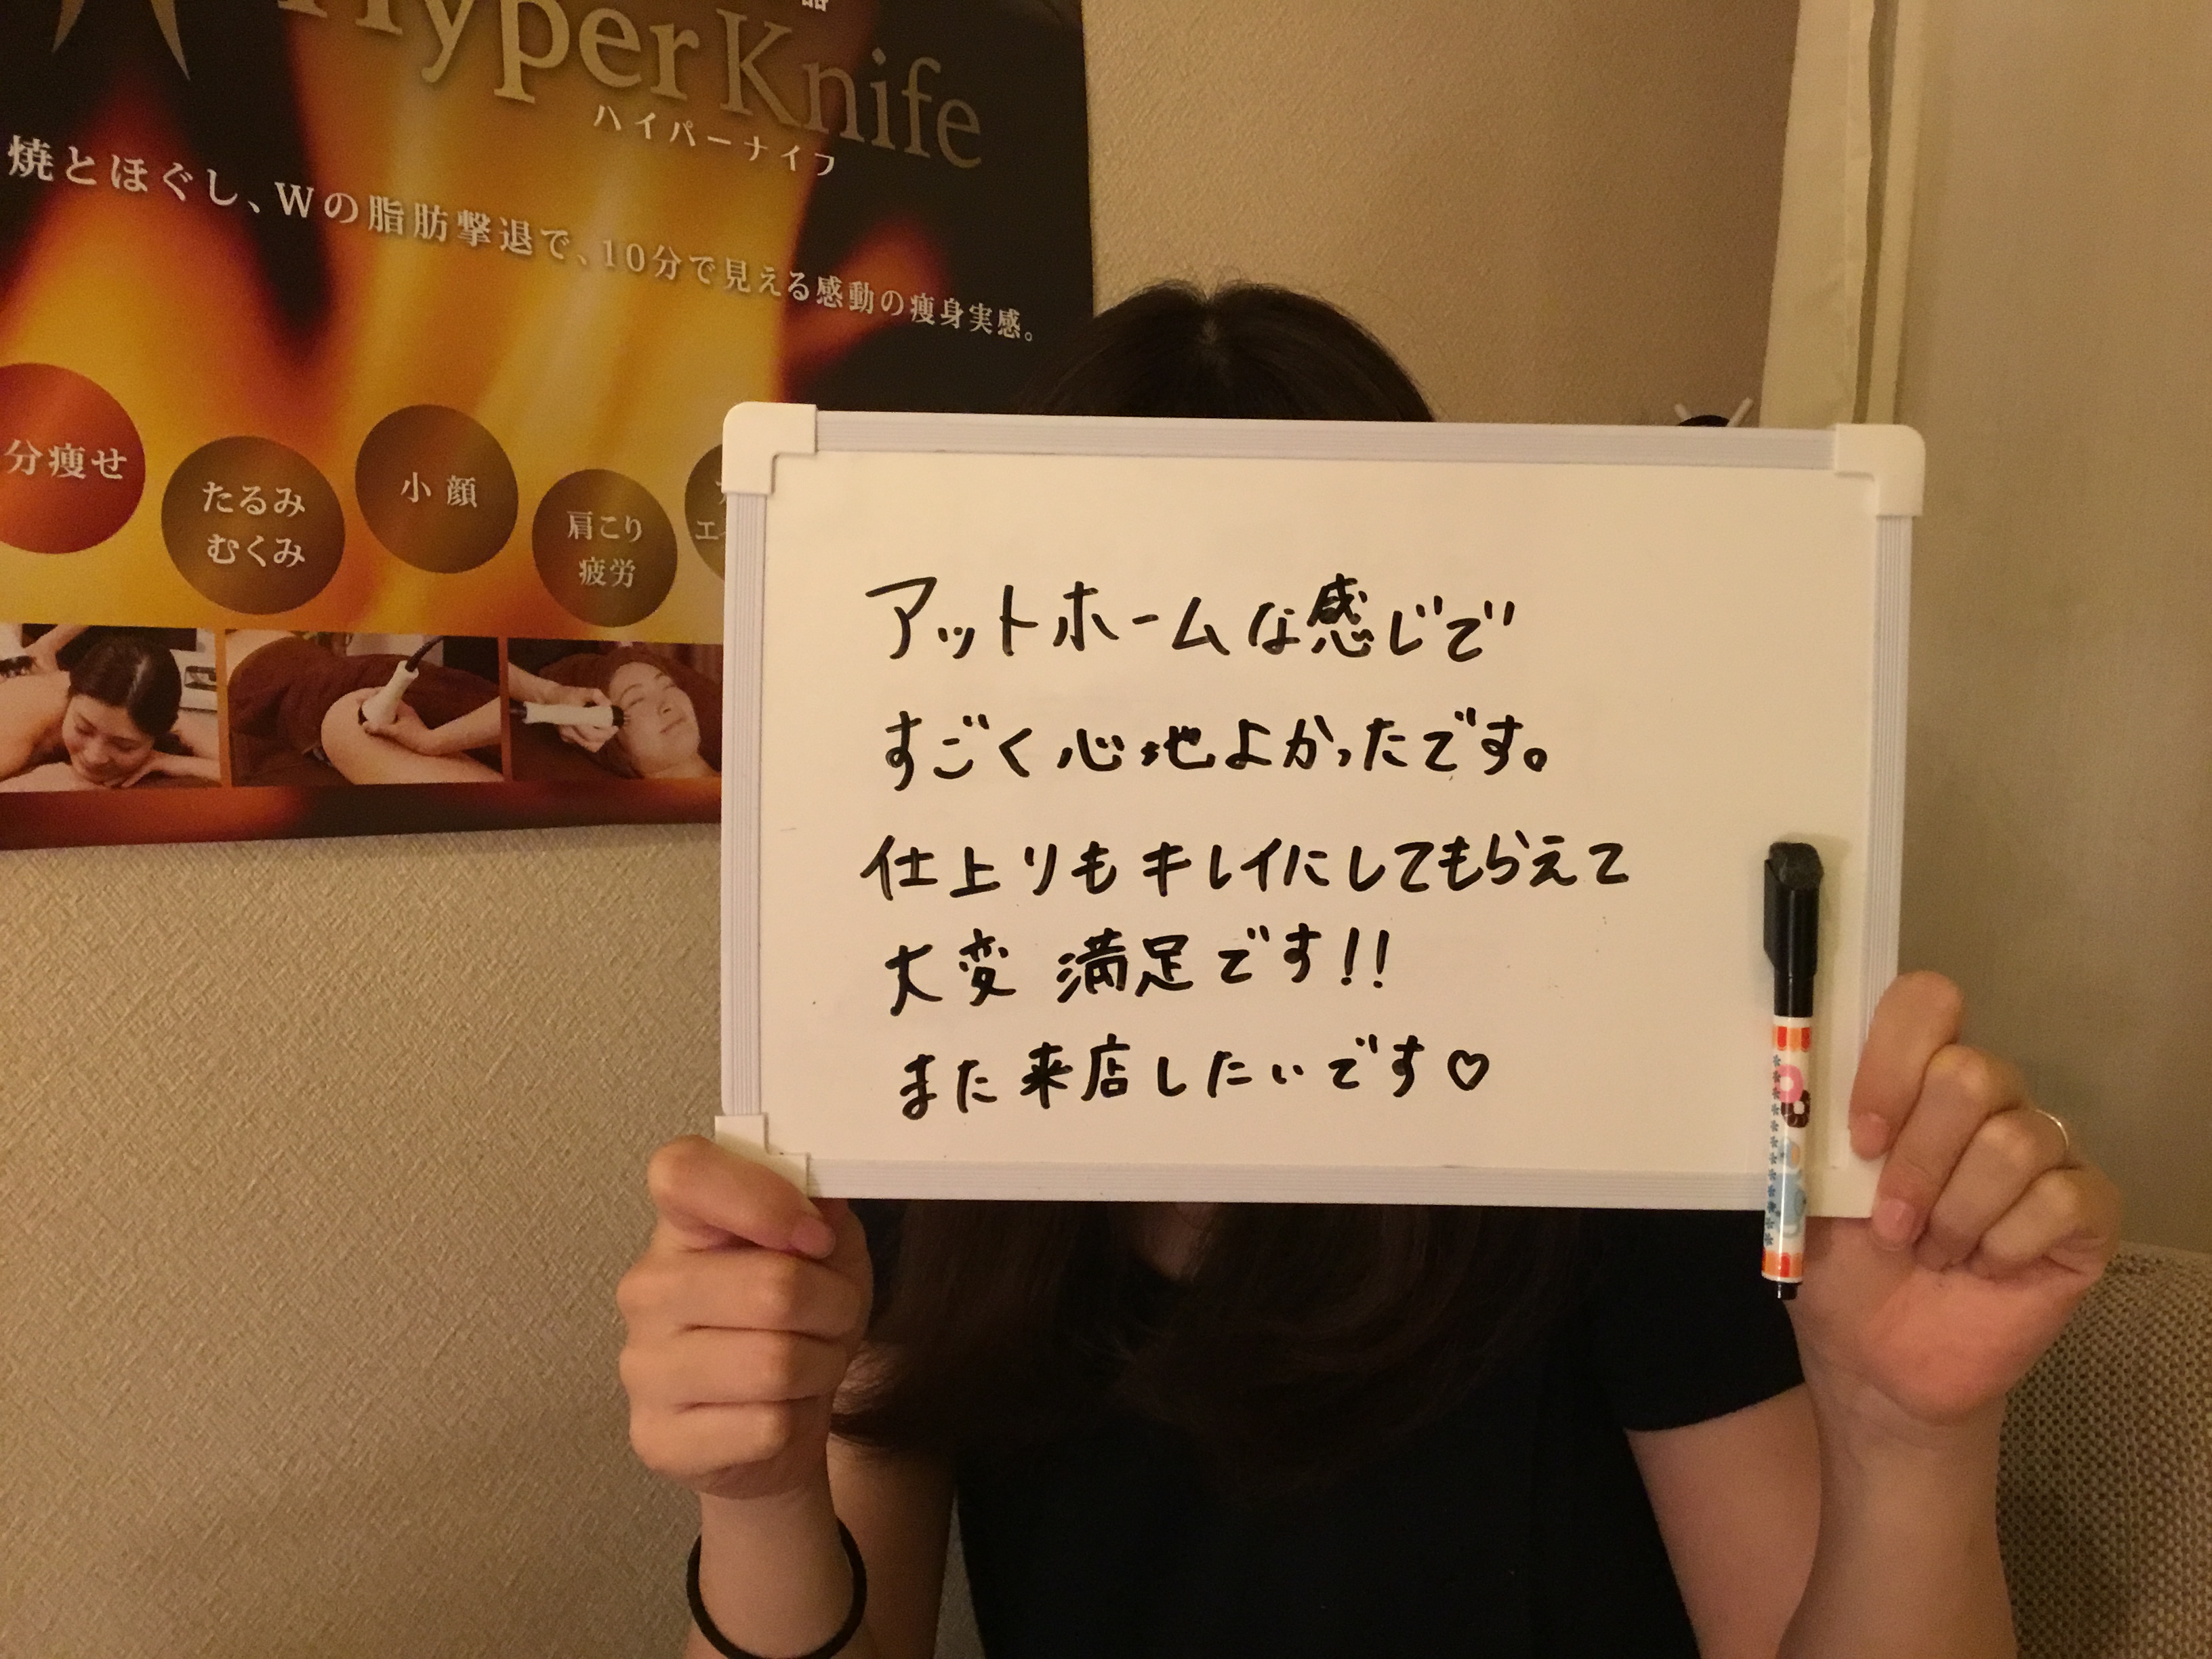 HyperKnife
ハイパーナイフ
焼とほぐし、Wの脂肪撃退で、10分で見える感動の痩身実感。
分痩せ
たるみ
むくみ
小顔
肩こり
疲労
アットホームな感じで
すごく心地よかったです。
仕上りもキレイにしてもらえて
大変 満足です!!
また来店したいです♡